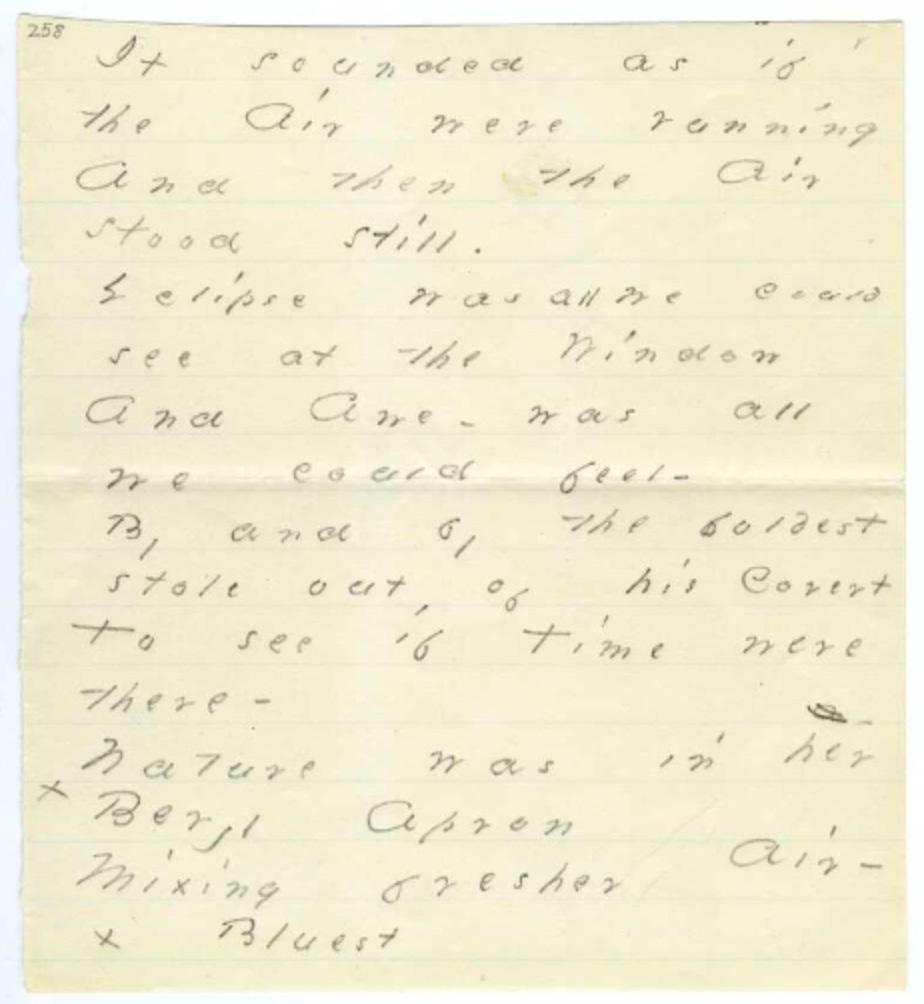 258
It sounded as if
the Air were running
And then the Air
stood still.
Eclipse was all we could
see at the Window
And Awe - was all
we could feel -
By and by the boldest
stole out, of his Covert
To see if Time were
there -
Nature was in her
x Beryl Apron
Mixing fresher Air -
x Bluest